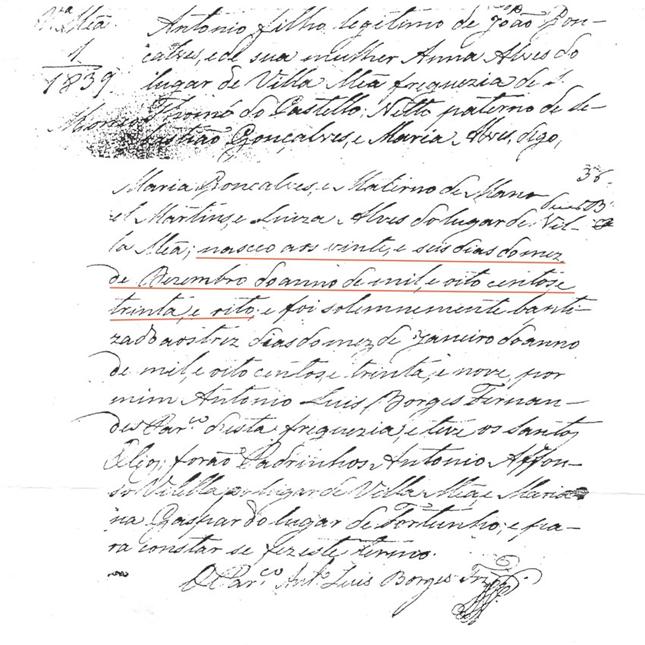 V.ª Meã
1
1839
Antonio filho legitimo de João Gon-
calves, e de sua mulher Anna Alves do
lugar de Villa Meã freguezia de S.
Thomé do Castello: Netto paterno de Se-
bastião Gonçalves, e Maria Alves, digo,
36
Maria Goncalves, e Materno de Mano-
el Martins, e Luiza Alves do lugar de Vil-
la Meã; nasceo aos vinte, e seis dias do mez
de Dezembro do anno de mil, e oito centos, e
trinta, e oito, e foi solemnemente bauti-
zado aos trez dias do mez de Janeiro do anno
de mil, e oito centos, e trinta, e nove, por
mim Antonio Luis Borges Fernan-
des Par.co desta freguezia, e teve os santos
Oleos; forão Padrinhos Antonio Affon-
so Vilella do lugar de Villa Meã, e Maria-
na Gaspar do lugar de Fortunho; e pa-
ra constar se fez este termo.
O Par.co Ant.º Luis Borges Frz